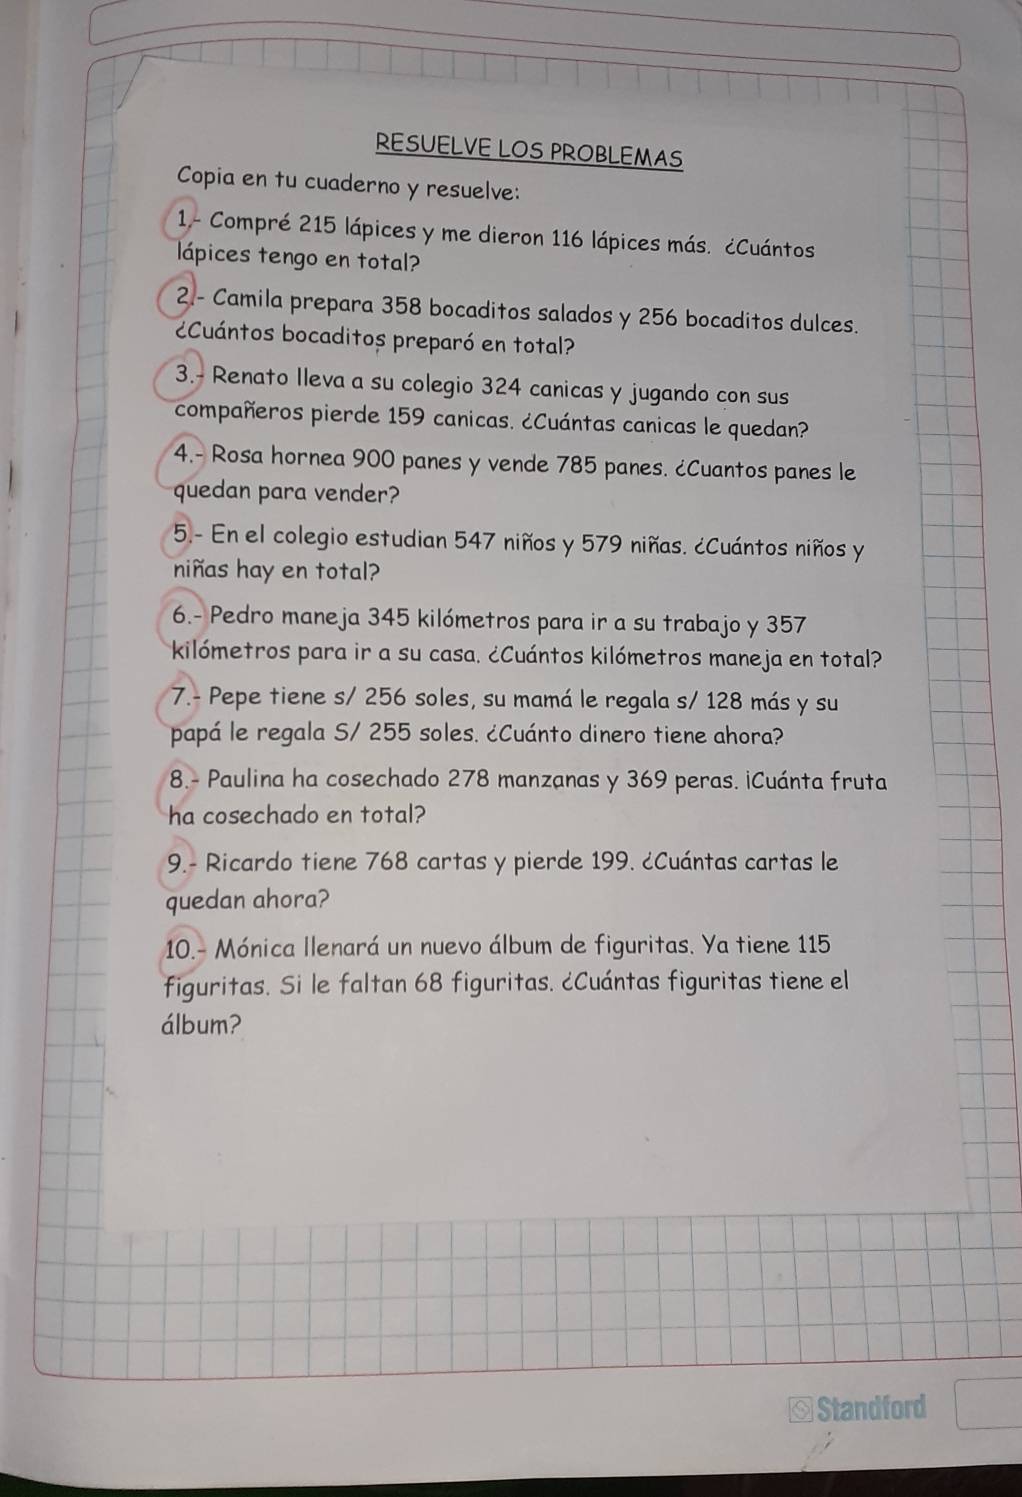 RESUELVE LOS PROBLEMAS
Copia en tu cuaderno y resuelve:
1.- Compré 215 lápices y me dieron 116 lápices más. ¿Cuántos
lápices tengo en total?
2.- Camila prepara 358 bocaditos salados y 256 bocaditos dulces.
¿Cuántos bocaditos preparó en total?
3.- Renato lleva a su colegio 324 canicas y jugando con sus
compañeros pierde 159 canicas. ¿Cuántas canicas le quedan?
4.- Rosa hornea 900 panes y vende 785 panes. ¿Cuantos panes le
quedan para vender?
5.- En el colegio estudian 547 niños y 579 niñas. ¿Cuántos niños y
niñas hay en total?
6.- Pedro maneja 345 kilómetros para ir a su trabajo y 357
kilómetros para ir a su casa. ¿Cuántos kilómetros maneja en total?
7.- Pepe tiene s/ 256 soles, su mamá le regala s/ 128 más y su
papá le regala S/ 255 soles. ¿Cuánto dinero tiene ahora?
8.- Paulina ha cosechado 278 manzanas y 369 peras. ¡Cuánta fruta
ha cosechado en total?
9.- Ricardo tiene 768 cartas y pierde 199. ¿Cuántas cartas le
quedan ahora?
10.- Mónica llenará un nuevo álbum de figuritas. Ya tiene 115
figuritas. Si le faltan 68 figuritas. ¿Cuántas figuritas tiene el
álbum?
Standford